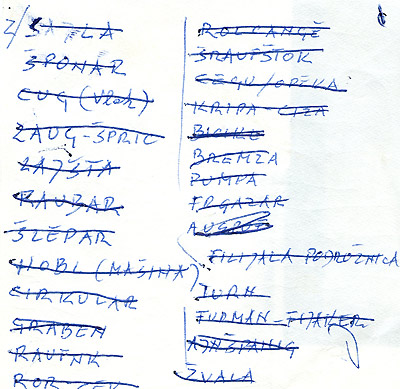 2/ ŠAJLA
ŠPONAR
CUG (VLAK)
ZAUG-ŠPRIC
LAJŠTA
RAUBAR
ŠLEPAR
HOBL (MAŠINA)
CIRKULAR
GRABEN
RAUFNK
ROLCANGĚ
ŠRAUFŠTOK
CEGU/OPEKA
KRIPA-CIZA
BICIKL
BREMZA
PUMPA
FRGAZAR
AUSPUH
FILIJALA PODRUŽNICA
TURN
FURMAN-FIJAKER
AJNŠPANIG
ŽVALA